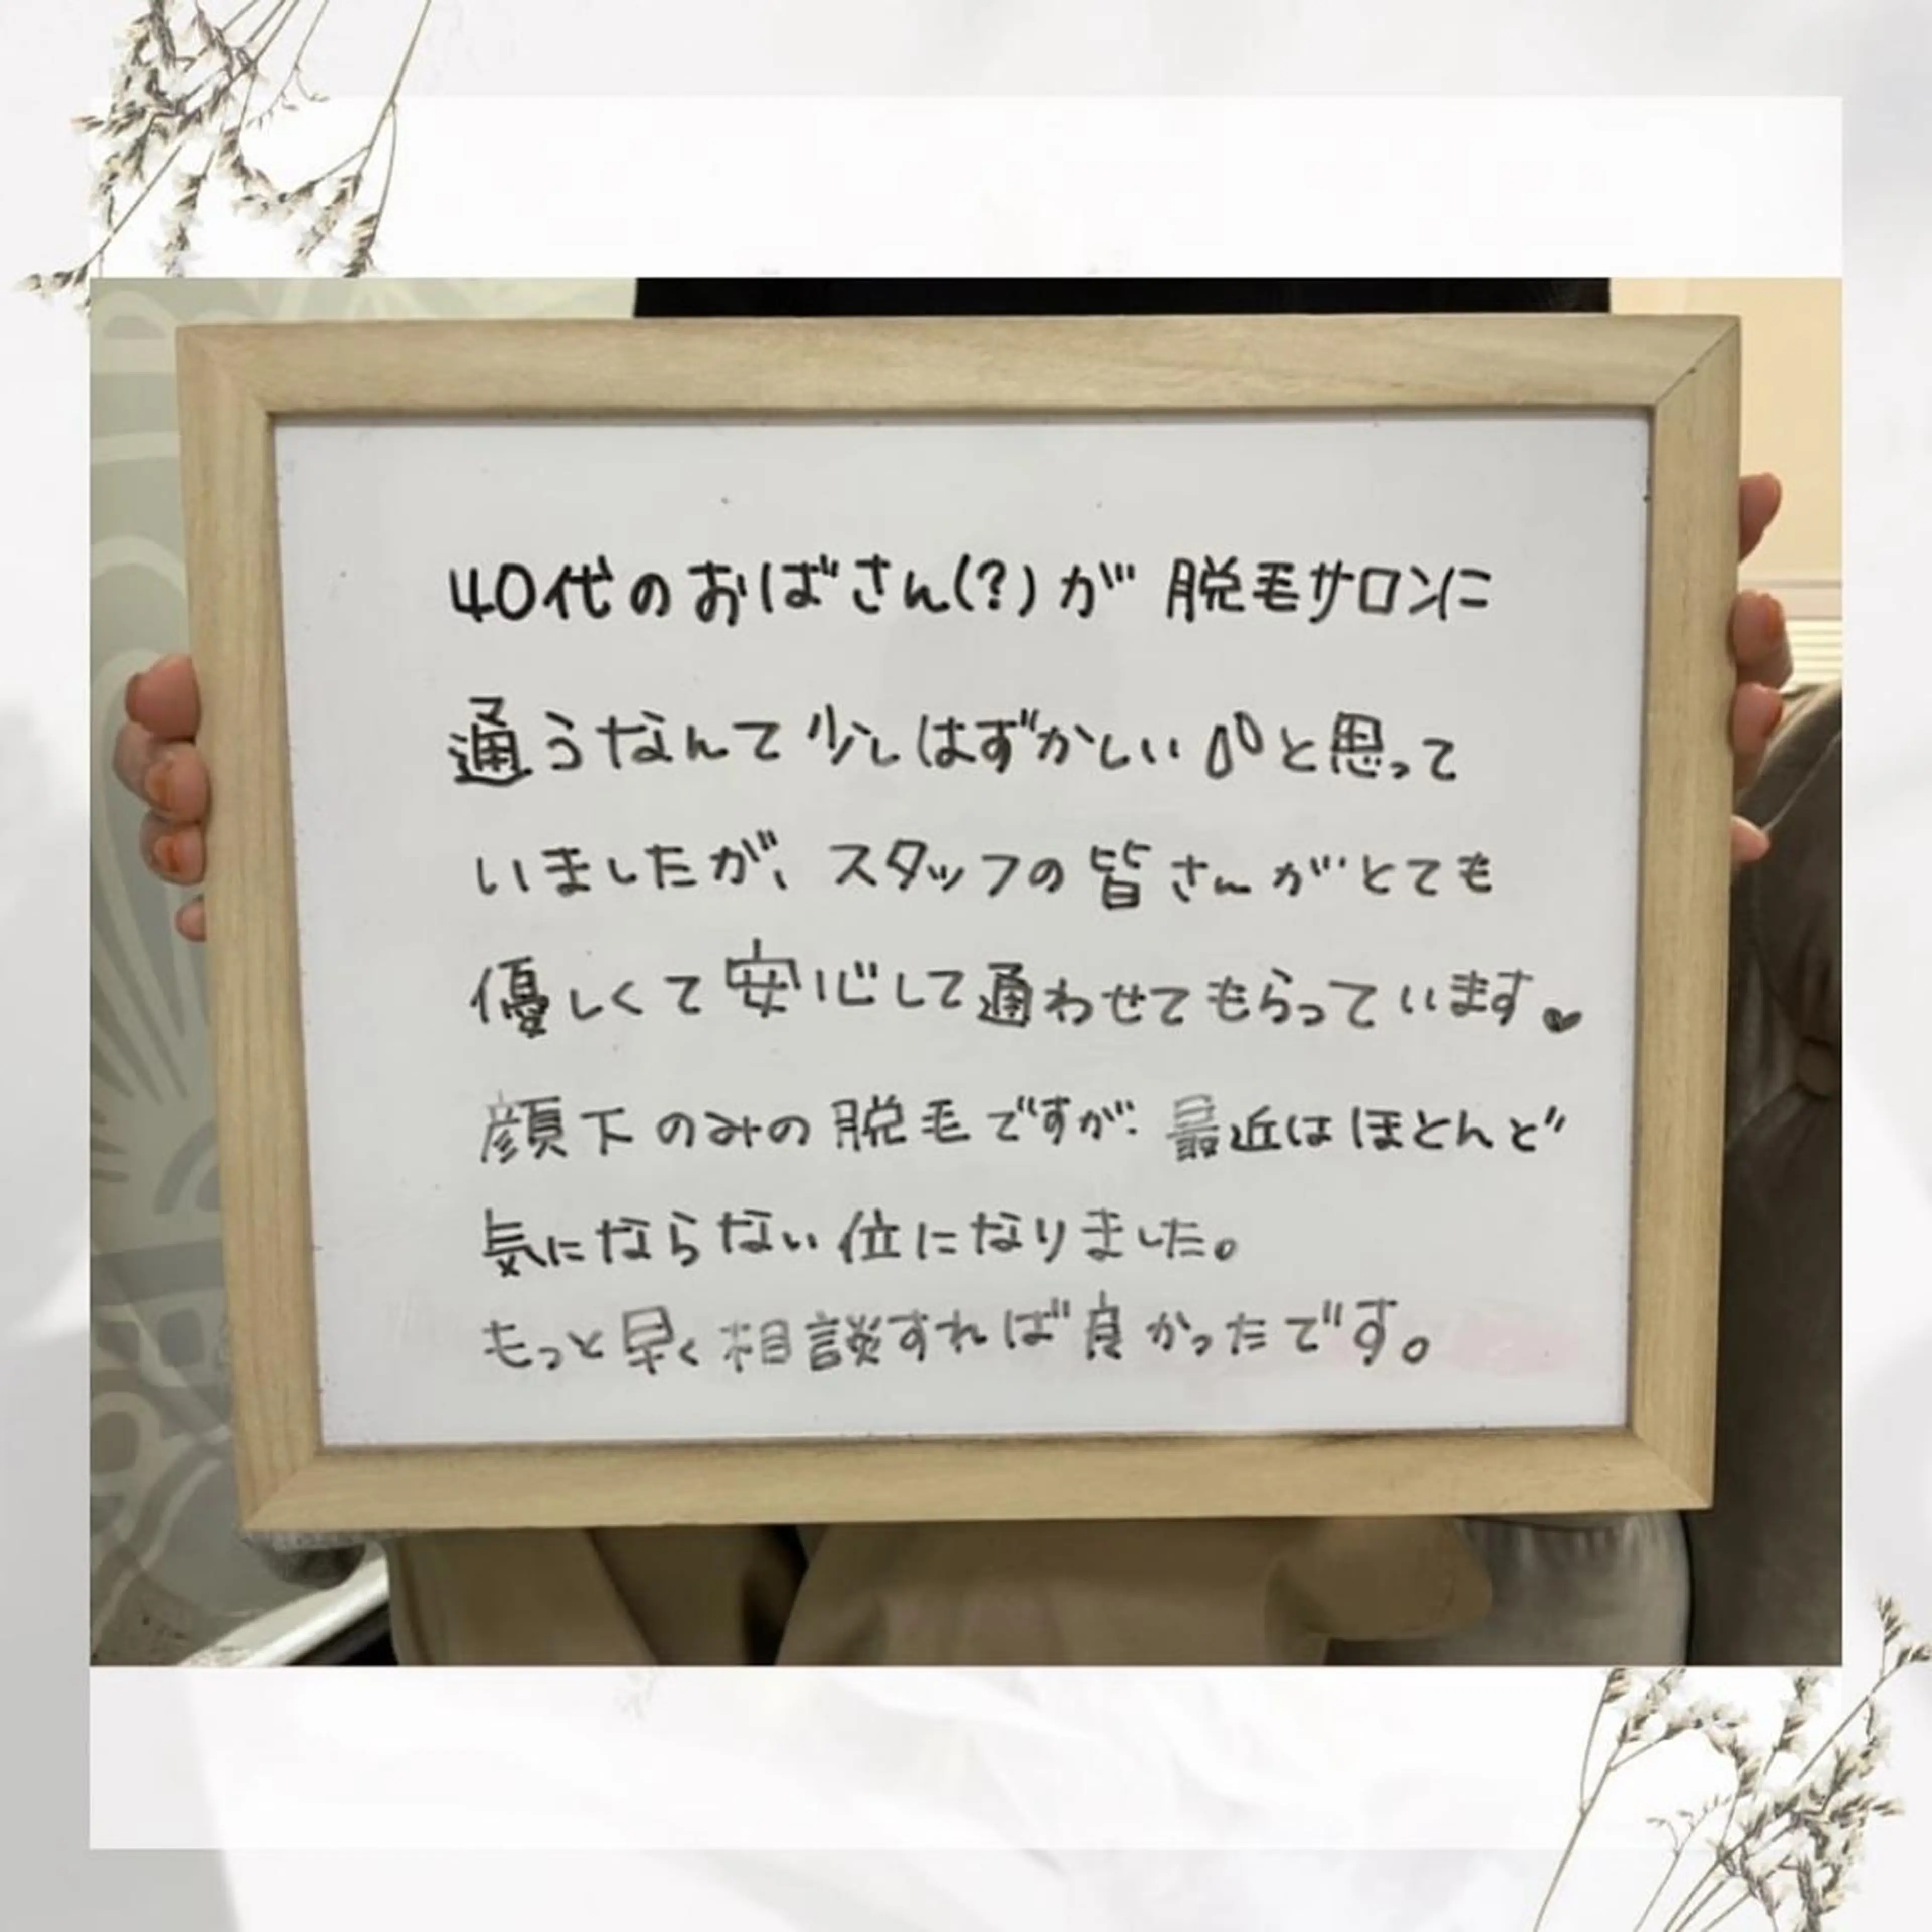 40代のおばさん(?)が 脱毛サロンに
通うなんて少しはずかしい💦と思って
いましたが、スタッフの皆さんがとても
優しくて安心して通わせてもらっています♥
顔下のみの脱毛ですが、最近はほとんど
気にならない位になりました。
もっと早く相談すれば良かったです。